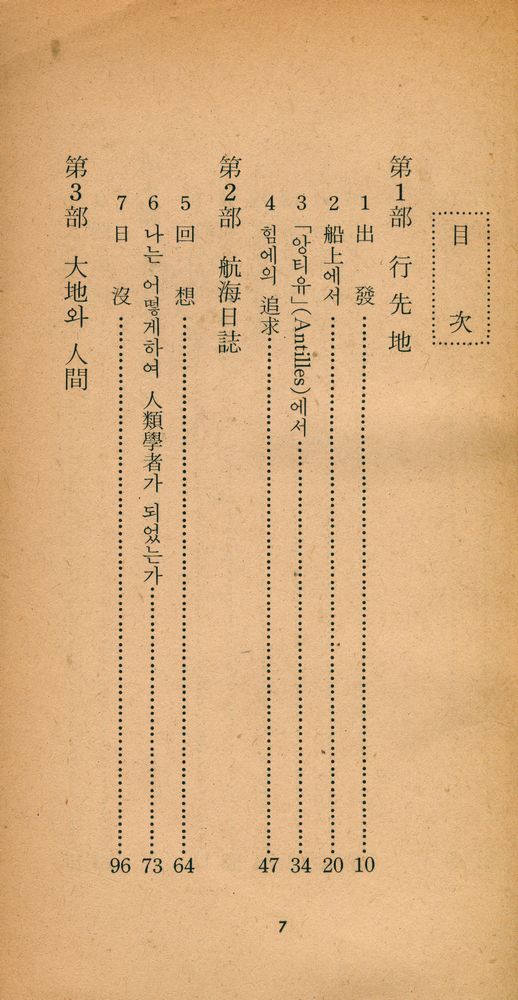 目 次
第1部 行先地
1 出 發 10
2 船上에서 20
3 「앙티유」(Antilles)에서 34
4 힘에의 追求 47
第2部 航海日誌
5 回 想 64
6 나는 어떻게하여 人類學者가 되었는가 73
7 日 沒 96
第3部 大地와 人間
7